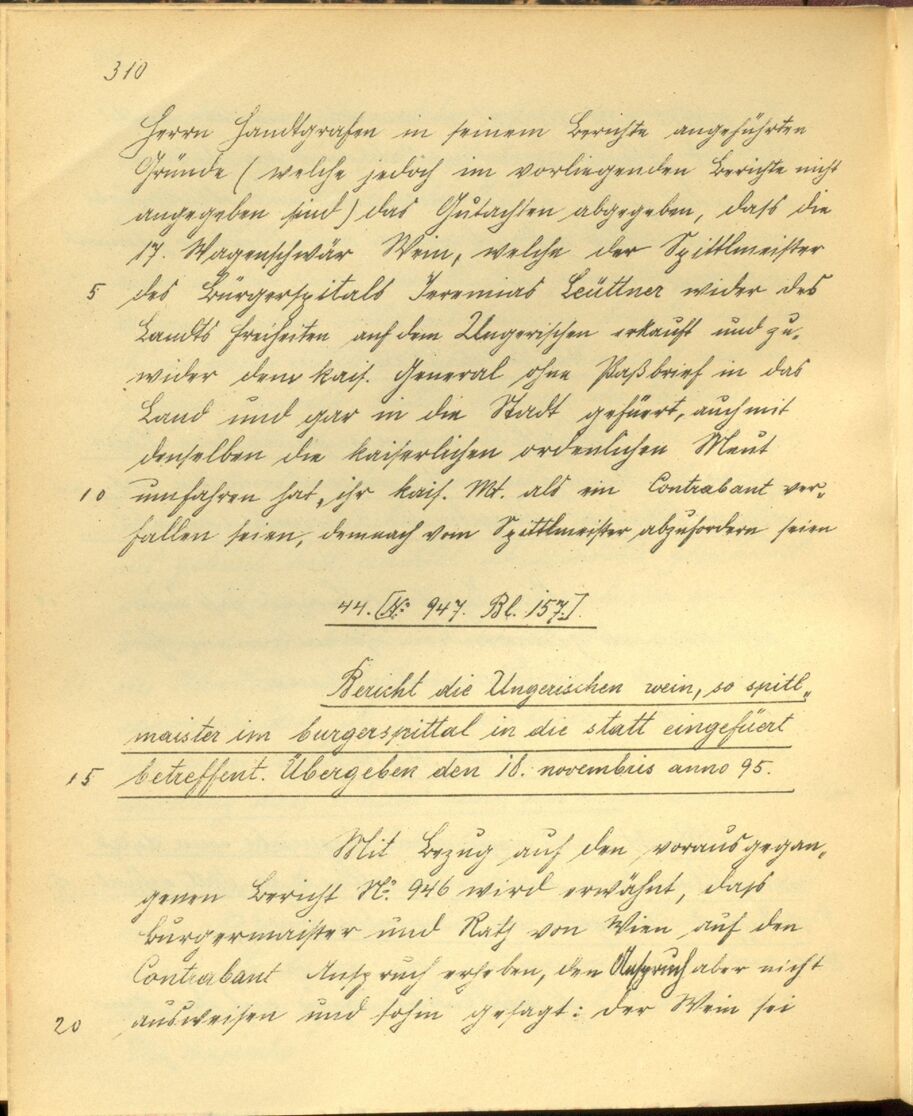 310
Herrn Handtgrafen in seinem Berichte angeführten
Gründe (welche jedoch im vorliegenden Berichte nicht
angegeben sind) das Gutachten abgegeben, dass die
17. Wagenschwär Wein, welche der Spittlmeister
5 des Bürgerspitals Jeremias Leüttner wider des
Landts Freiheiten auf dem Ungerischen erkauft und zu-
wider dem kais. General ohne Paßbrief in das
Land und gar in die Stadt gefüert, auch mit
denselben die kaiserlichen ordenlichen Meut
10 umfahren hat, ihr kais. Mt. als ein Contrabant ver-
fallen seien, demnach vom Spittlmeister abzufordern seien
44. [No. 947. Bl. 157.].
Bericht die Ungerischen wein, so spitl-
maister im burgerspittal in die statt eingefüert
15 betreffent. Übergeben den 18. novembris anno 95.
Mit Bezug auf den vorausgegan-
genen Bericht No. 946 wird erwähnt, dass
Burgermaister und Rath von Wien auf den
Contrabant Anspruch erheben, den Anspruch aber nicht
20 ausweisen und sohin gesagt: der Wein sei